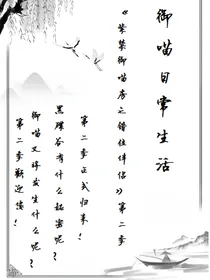 御喵日常生活
《紫禁御喵房之错位伴侣》第二季
第二季正式归来！
黑谷有什么秘密呢？
御喵又将发生什么呢？
第二季歡迎您！